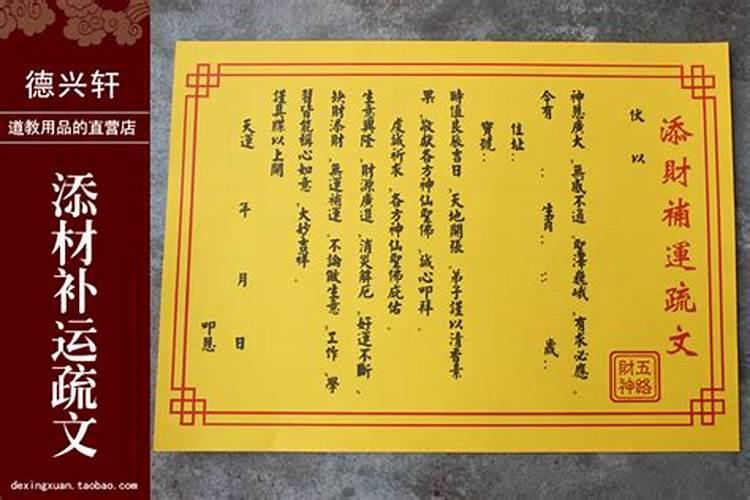 德兴轩
道教用品的直营店
添材补运疏文
dexingxuan.taobao.com
添財補運疏文
五路
財神
伏以
神恩廣大，無感不通，聖澤巍峨，有求必應。
今有：生肖：：歲：
住址：
寶號：
時值良辰吉日，天地開張，弟子謹以清香素
果，敬獻各方神仙聖佛，誠心叩拜
虔誠祈求，各方神仙聖佛庇佑。
生意興隆，財源廣進，消災解厄，好運不斷、
缺財添財，無運補運，不論做生意，工作，學
習皆能稱心如意，大妙吉祥。
謹具牒以上聞
天運 年 月 日
叩恩